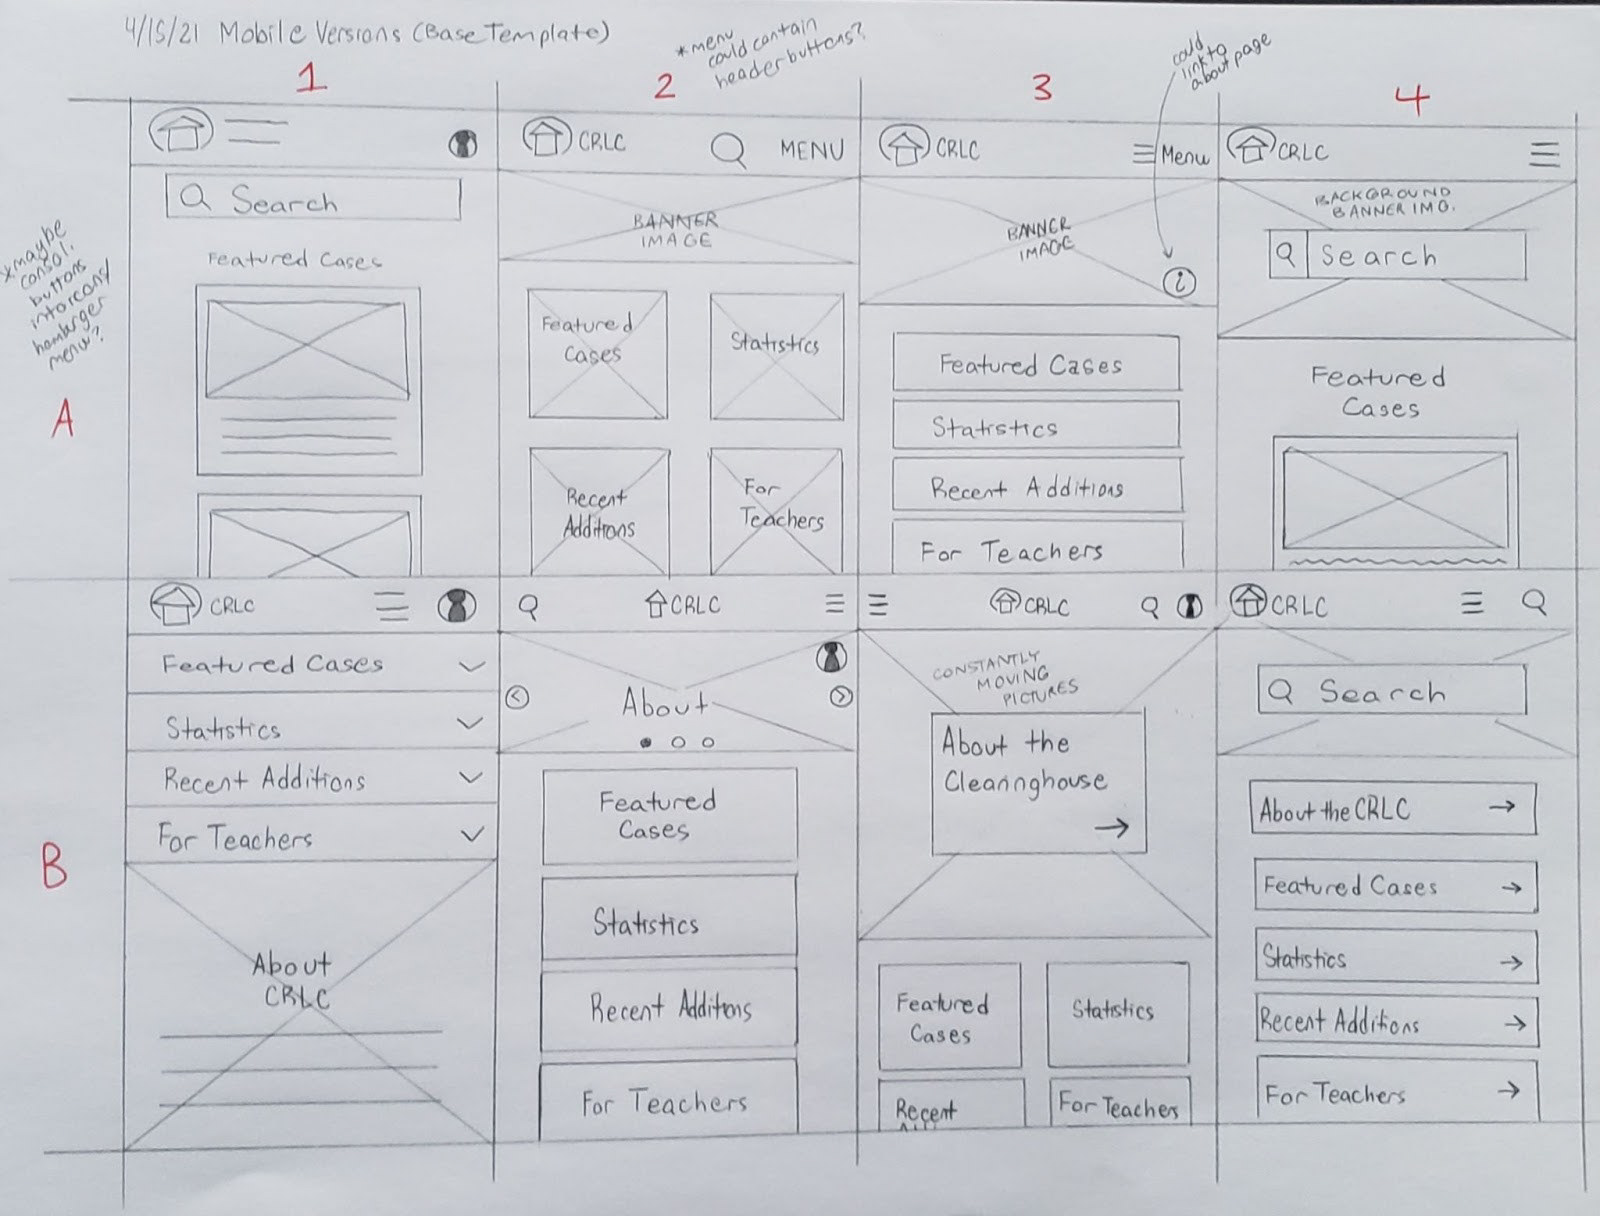 4/15/21 Mobile Versions (Base Template)
*menu
could contain
header buttons?
could
link to
about page
1
2
3
4
*maybe
consol.
buttons
into icons/
hamburger
menu?
A
Search
Featured Cases
CRLC
MENU
BANNER
IMAGE
Featured
Cases
Statistics
Recent
Additions
For
Teachers
CRLC
Menu
BANNER
IMAGE
i
Featured Cases
Statistics
Recent Additions
For Teachers
CRLC
BACKGROUND
BANNER IMG.
Search
Featured
Cases
B
CRLC
Featured Cases
Statistics
Recent Additions
For Teachers
About
CRLC
CRLC
About
Featured
Cases
Statistics
Recent Additions
For Teachers
CRLC
CONSTANTLY
MOVING
PICTURES
About the
Clearinghouse
Featured
Cases
Statistics
Recent
For Teachers
CRLC
Search
About the CRLC
Featured Cases
Statistics
Recent Additions
For Teachers